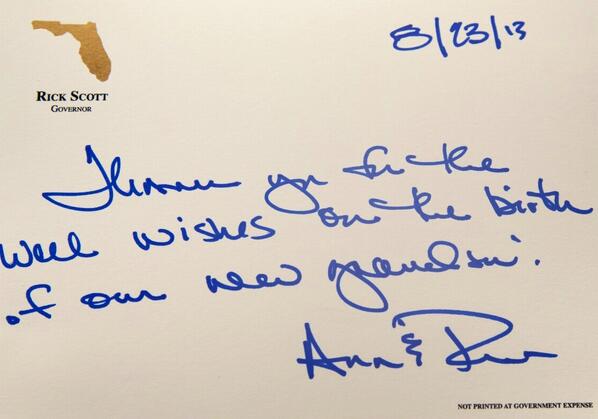 8/23/13
RICK SCOTT
GOVERNOR
Thank you for the
well wishes on the birth
of our new grandson.
Ann & Rick
NOT PRINTED AT GOVERNMENT EXPENSE